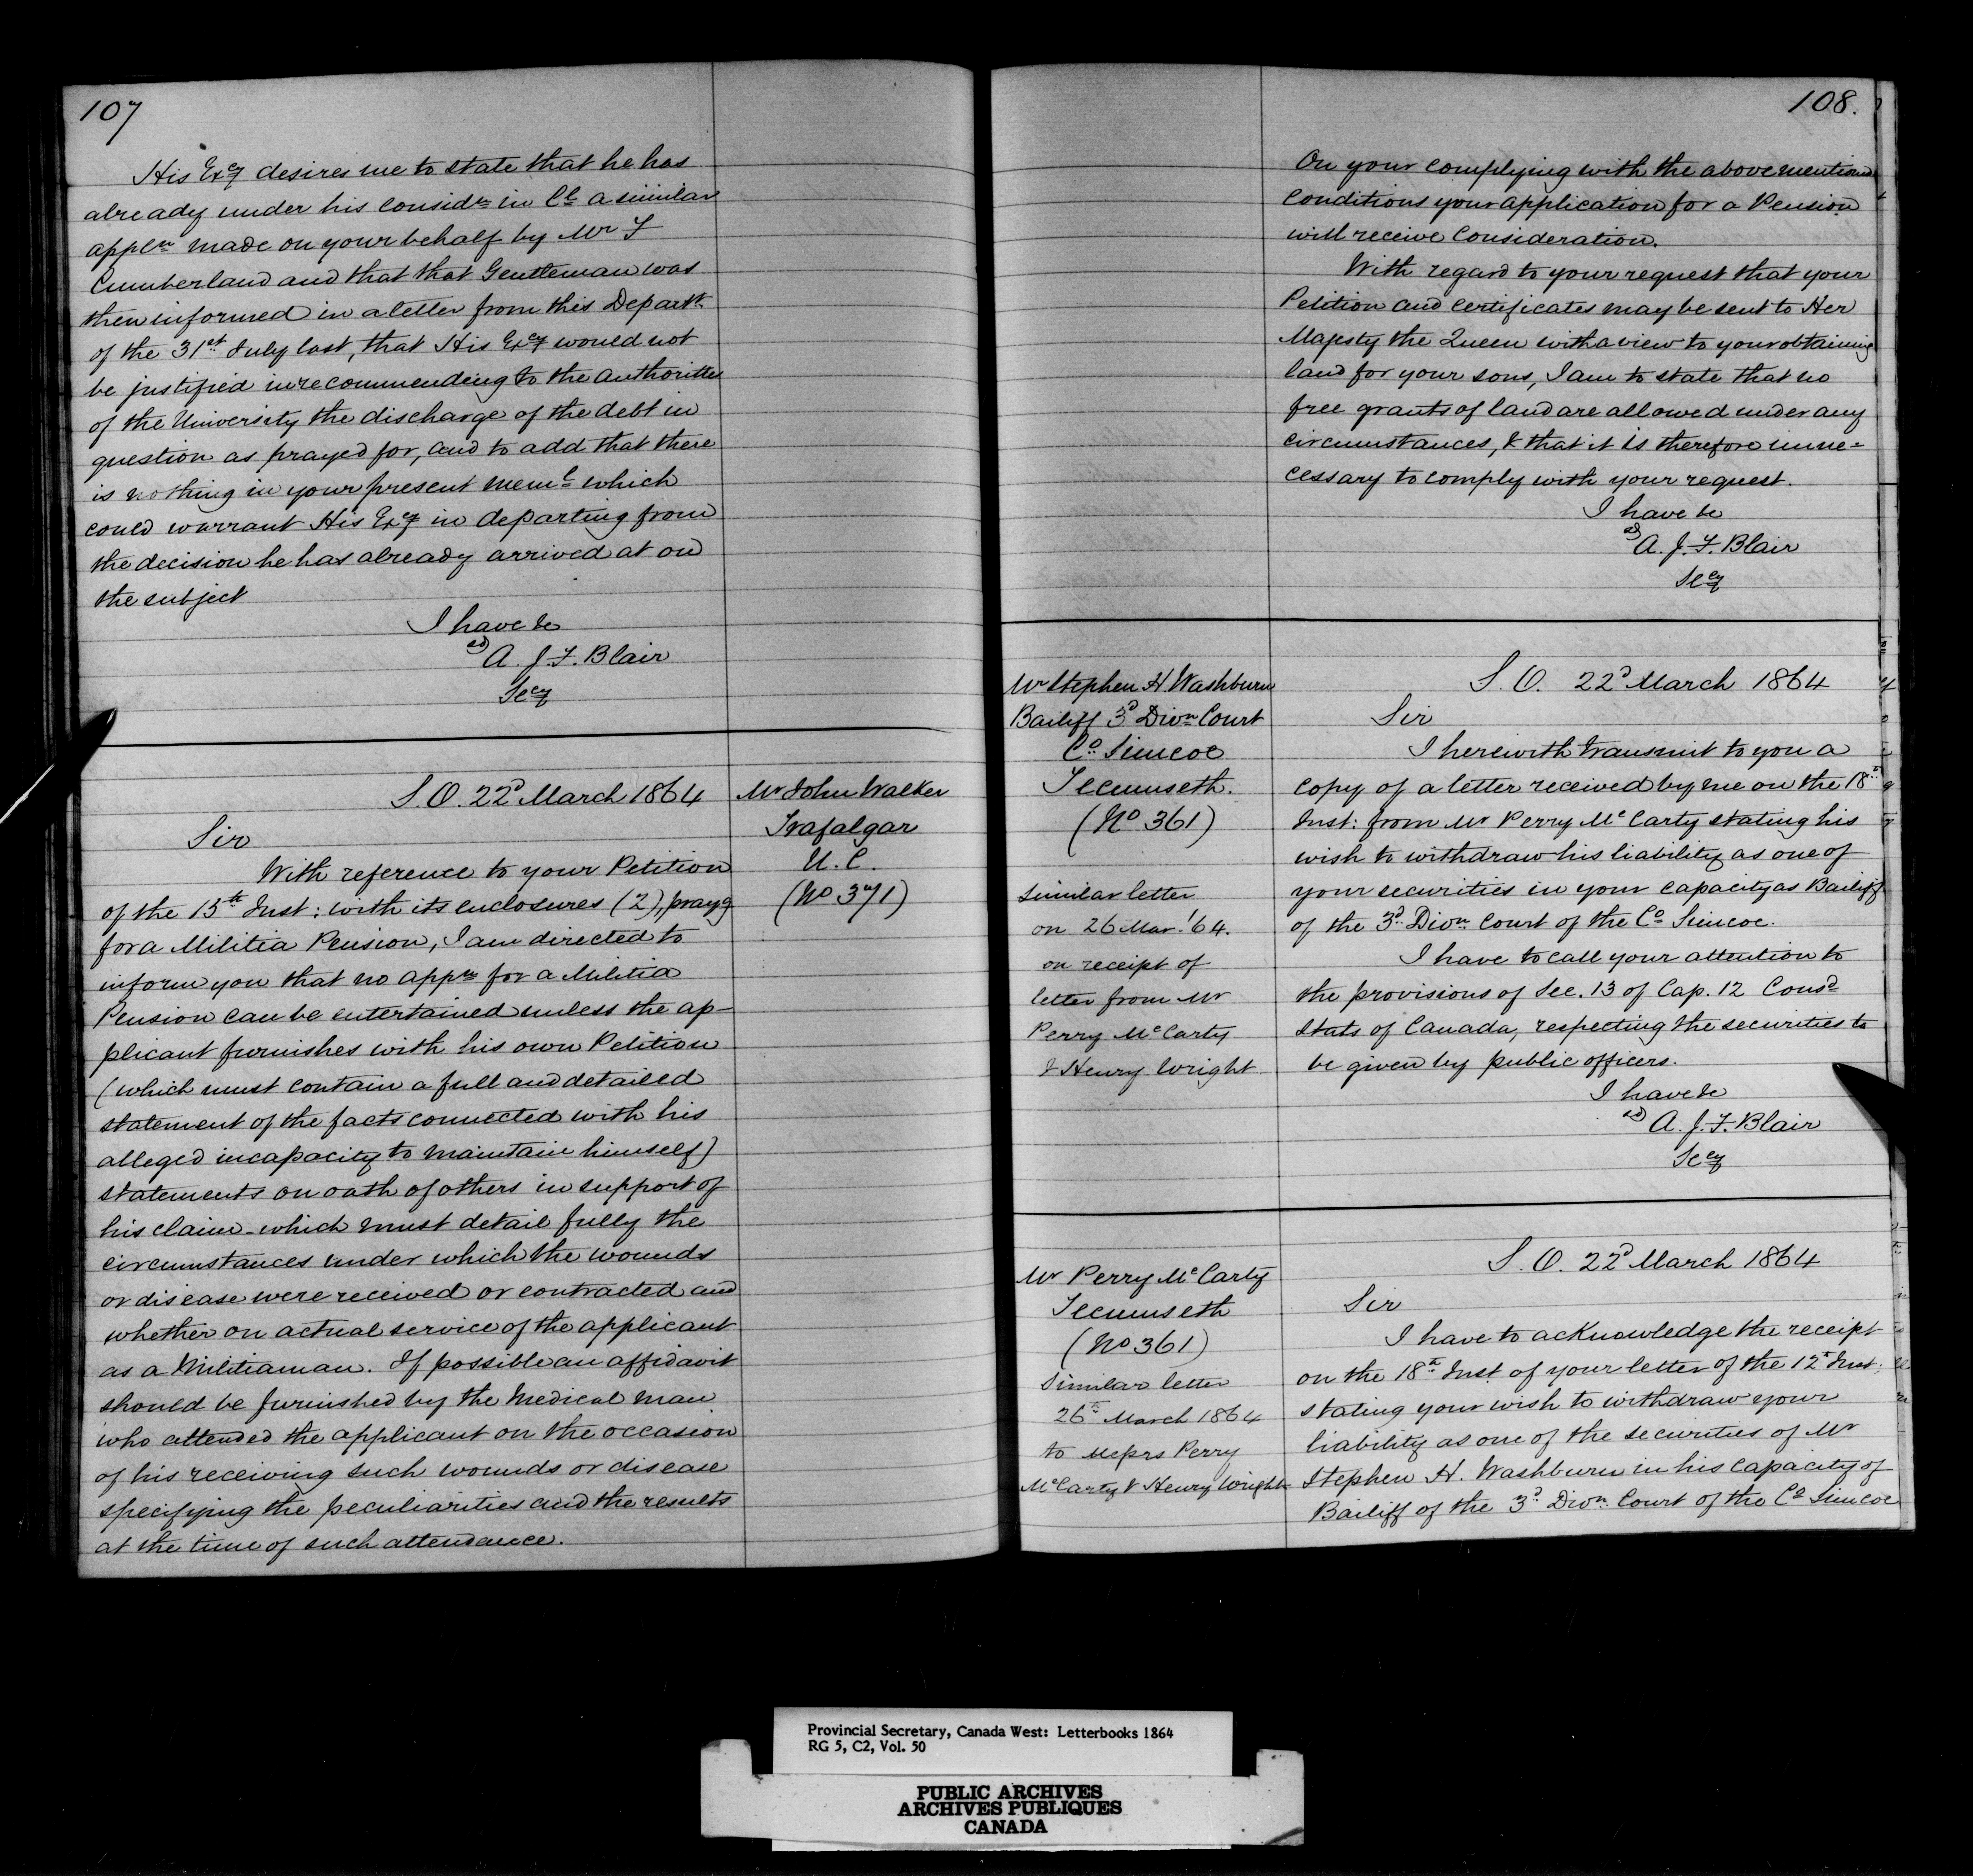 107
His Excy desires me to state that he has
already under his considn in Cl a similar
appln made on your behalf by Mr F
Cumberland and that that Gentleman was
then informed in a letter from this Departt
of the 31st July last, that His Excy would not
be justified in recommending to the authorities
of the University the discharge of the debt in
question as prayed for, and to add that there
is nothing in your present meml which
could warrant His Excy in departing from
the decision he has already arrived at on
the subject
I have &c
sd A. J. F. Blair
Secy
S. O. 22d March 1864
Mr John Walker
Trafalgar
U. C.
(No 371)
Sir
With reference to your Petition
of the 15th Inst: with its enclosures (2), prayg
for a Militia Pension, I am directed to
inform you that no appn for a Militia
Pension can be entertained unless the ap-
plicant furnishes with his own Petition
(which must contain a full and detailed
statement of the facts connected with his
alleged incapacity to maintain himself)
statements on oath of others in support of
his claim - which must detail fully the
circumstances under which the wounds
or disease were received or contracted and
whether on actual service of the applicant
as a Militiaman. If possible an affidavit
should be furnished by the Medical man
who attended the applicant on the occasion
of his receiving such wounds or disease
specifying the peculiarities and the results
at the time of such attendance.
108.
On your complying with the above mentioned
conditions your application for a Pension
will receive Consideration.
With regard to your request that your
Petition and certificates may be sent to Her
Majesty the Queen with a view to your obtaining
land for your sons, I am to state that no
free grants of land are allowed under any
circumstances, & that it is therefore unne=
cessary to comply with your request.
I have &c
sd A. J. F. Blair
Secy
Mr Stephen H. Washburn
Bailiff 3d Divn Court
Co Simcoe
Tecumseth.
(No 361)
Similar letter
on 26 Mar! 64.
on receipt of
letter from Mr
Perry McCarty
& Henry Wright
S. O. 22d March 1864
Sir
I herewith transmit to you a
copy of a letter received by me on the 18th
Inst: from Mr Perry McCarty stating his
wish to withdraw his liability as one of
your securities in your capacity as Bailiff
of the 3d Divn Court of the Co Simcoe.
I have to call your attention to
the provisions of Sec. 13 of Cap. 12 Consd
Stats of Canada, respecting the securities to
be given by public officers.
I have &c
sd A. J. F. Blair
Secy
Mr Perry McCarty
Tecumseth
(No 361)
Similar letter
26th March 1864
to Messrs Perry
McCarty & Henry Wright
S. O. 22d March 1864
Sir
I have to acknowledge the receipt
on the 18th Inst of your letter of the 12th Inst:
stating your wish to withdraw your
liability as one of the securities of Mr
Stephen H. Washburn in his capacity of
Bailiff of the 3d Divn Court of the Co Simcoe
Provincial Secretary, Canada West: Letterbooks 1864
RG 5, C2, Vol. 50
PUBLIC ARCHIVES
ARCHIVES PUBLIQUES
CANADA